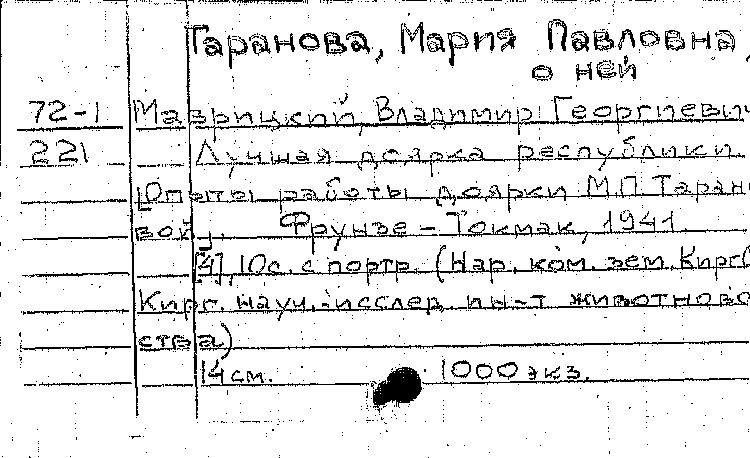 Таранова, Мария Павловна,
о ней
72-1 Маврицкий, Владимир Георгиевич
221 Лучшая доярка республики.
[Опыты работы доярки М.П. Таран
вой]. Фрунзе - Токмак, 1941.
[4], 10с. с портр. (Нар. ком. зем. Кирг
Кирг. науч.-исслед. ин-т животново
ства)
14 см. 1000 экз.